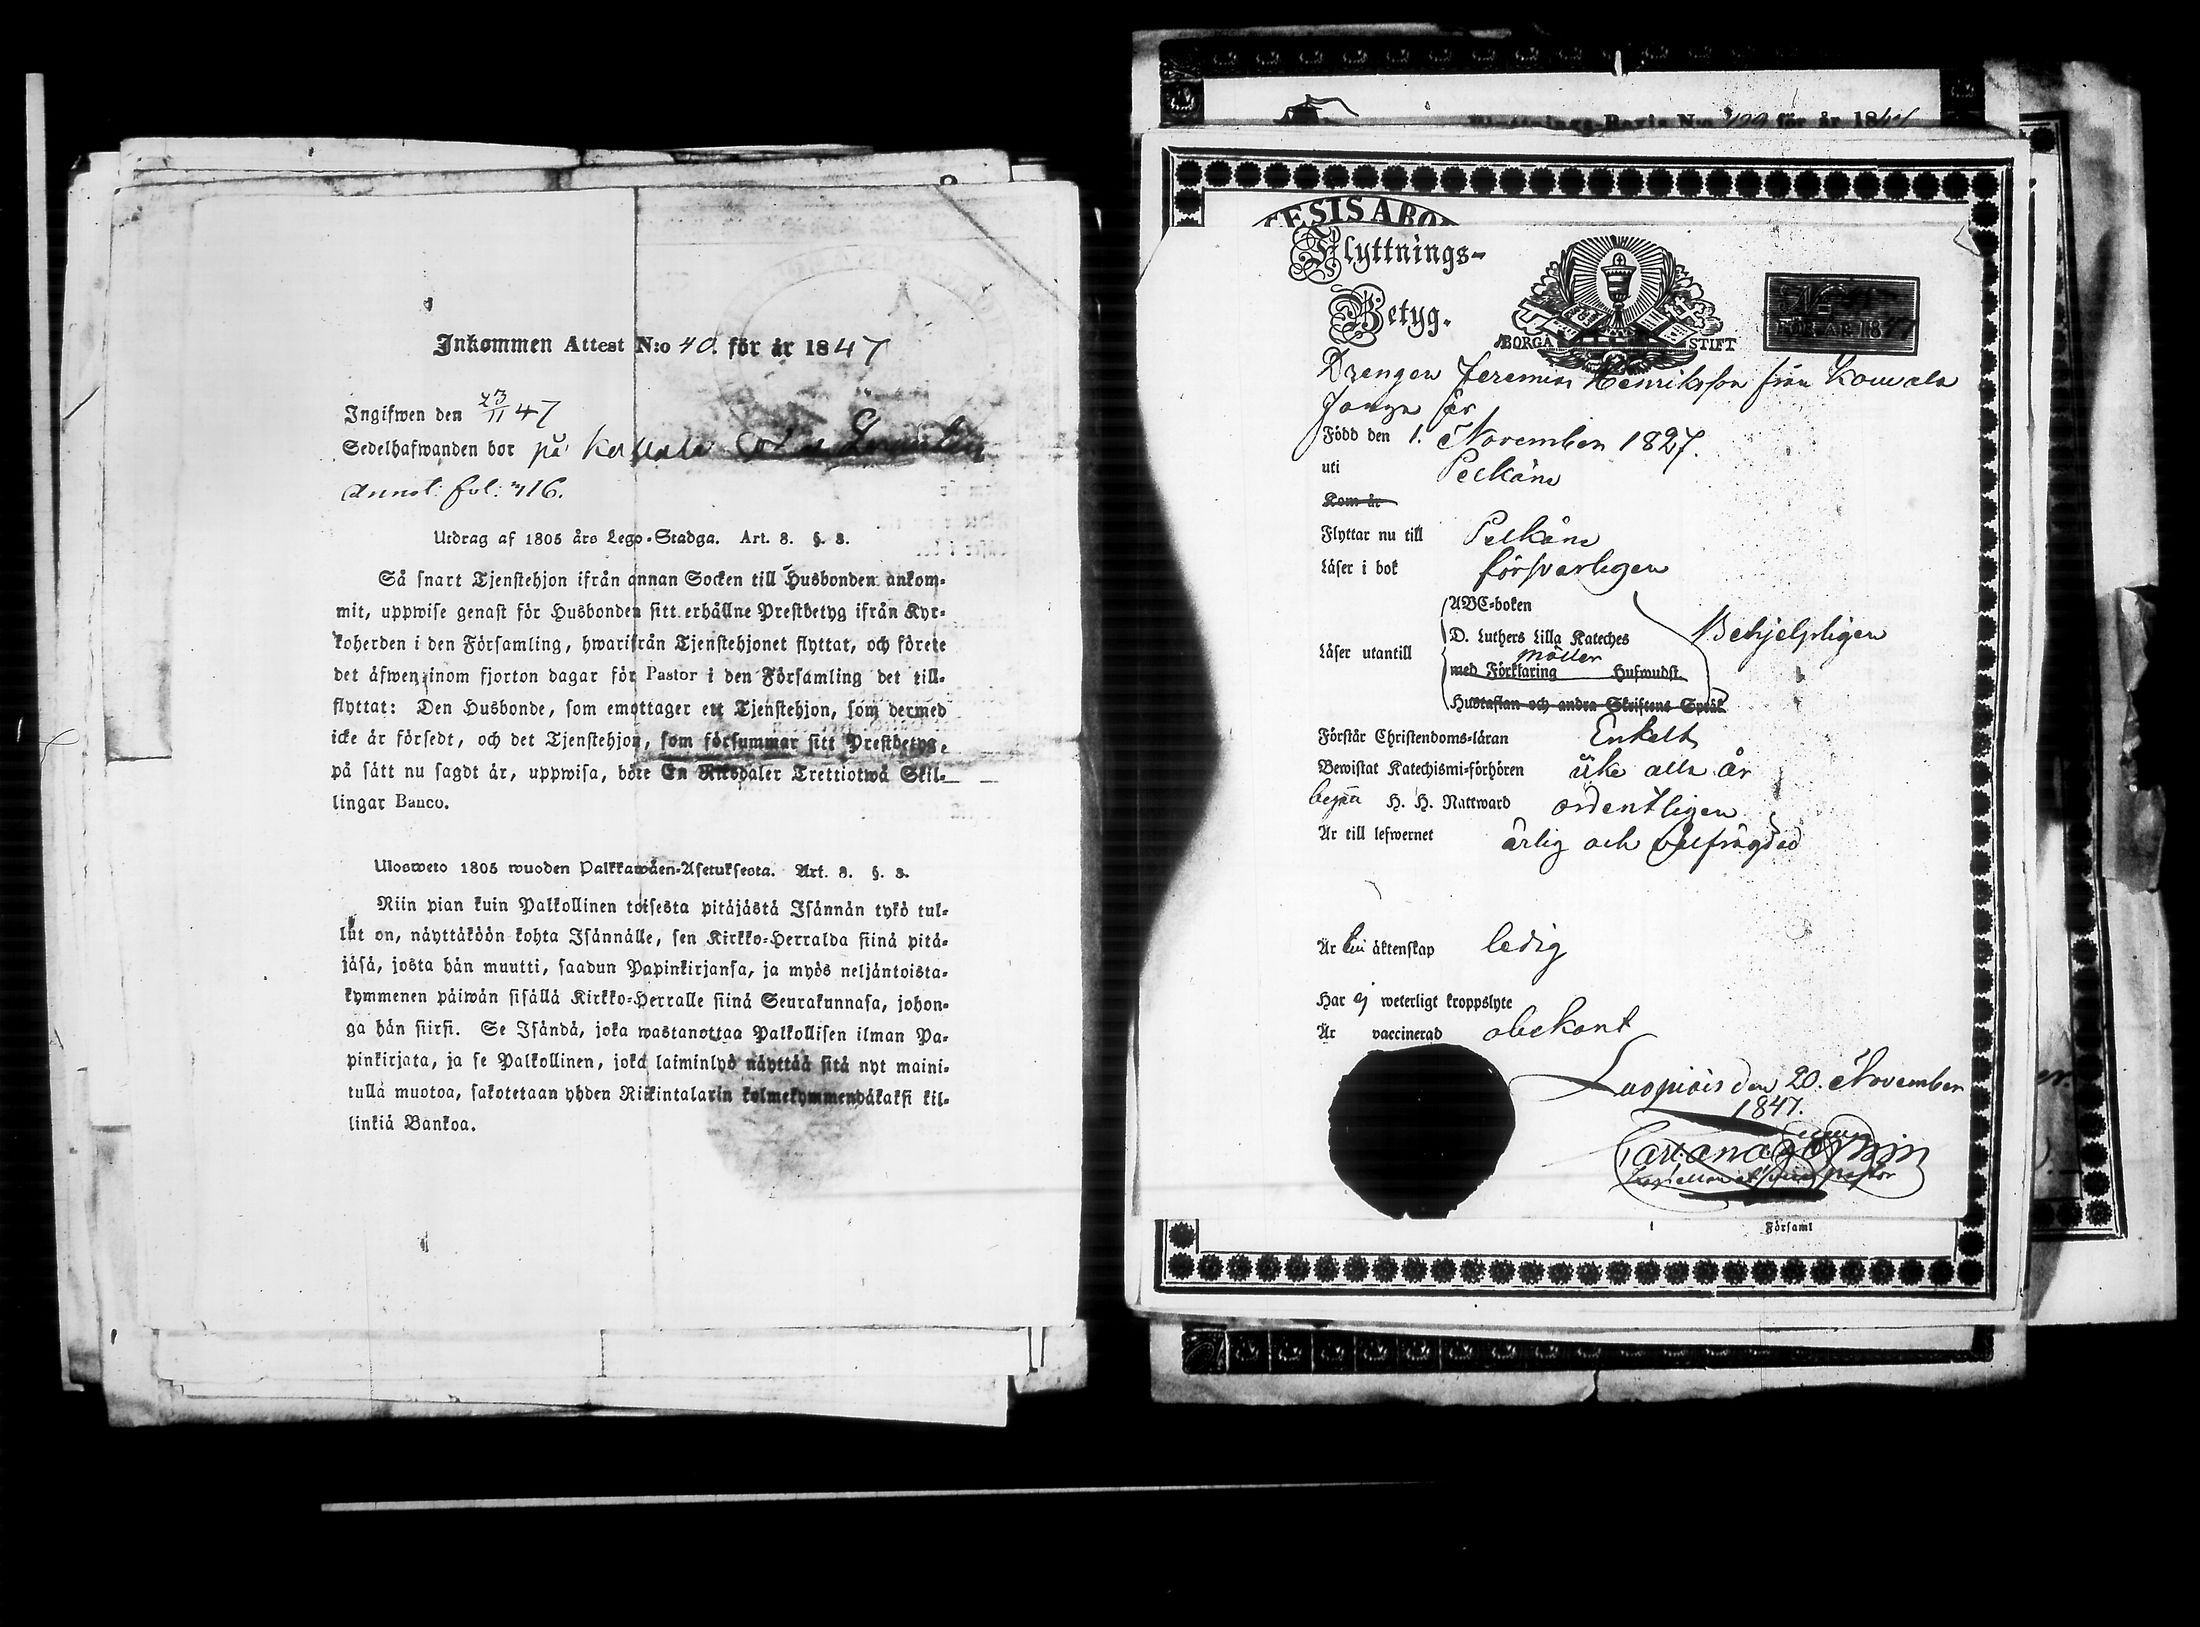 Inkommen Attest N:o 40. för år 1847
Ingifwen den 23/11 47
Sedelhafwanden bor på
Annot: fol: 416.
Utdrag af 1805 års Lego-Stadga. Art. 8. §. 8.
Så snart Tjenstehjon ifrån annan Socken till Husbonden ankom-
mit, uppwise genast för Husbonden sitt erhållne Prestbetyg ifrån Kyr-
koherden i den Församling, hwarifrån Tjenstehjonet flyttat, och förete
det äfwen inom fjorton dagar för Pastor i den Församling det till-
flyttat: Den Husbonde, som emottager ett Tjenstehjon, som dermed
icke är försedt, och det Tjenstehjon, som försummar sitt Prestbetyg,
på sätt nu sagdt är, uppwisa, böte En Riksdaler Trettiotwå Skil-
lingar Banco.
Ulosweto 1805 wuoden Palkkawäen-Asetuksesta. Art. 8. §. 8.
Niin pian kuin Palkollinen toisesta pitäjästä Isännän tykö tul-
lut on, näyttäköön kohta Isännälle, sen Kirkko-Herralda siinä pitä-
jäsä, josta hän muutti, saadun Papinkirjansa, ja myös neljäntoista-
kymmenen päiwän sisällä Kirkko-Herralle siinä Seurakunnasa, johon-
ga hän siirsi. Se Isändä, joka wastanottaa Palkollisen ilman Pa-
pinkirjata, ja se Palkollinen, joka laiminlyö näyttää sitä nyt maini-
tulla muotoa, sakotetaan yhden Riikintalarin kolmekymmendäkaksi kil-
linkiä Bankoa.
Flyttnings-Bewis N:o för år 1847
Flyttnings-
Betyg.
BORGÅ STIFT
FÖR ÅR 1847
Drengen Jeremias Henriksson från Kouvala
Född den 1. November 1827.
uti Pelkäne
Kom år
Flyttar nu till Pelkäne
Läser i bok försvarligen
ABC-boken
Läser utantill D. Luthers Lilla Kateches Behjelpligen
möller
med Förklaring Hufwudst.
Hustaflan och andra Skriftens Språk
Förstår Christendoms-läran Enkelt
Bewistat Katechismi-förhören icke alla år
begått H. H. Nattward ordentligen
Är till lefwernet ärlig och välfrägdad
Är till äktenskap ledig
Har ej weterligt kroppslyte
Är vaccinerad obekant
Luopiois den 20. November
1847.
i Församl